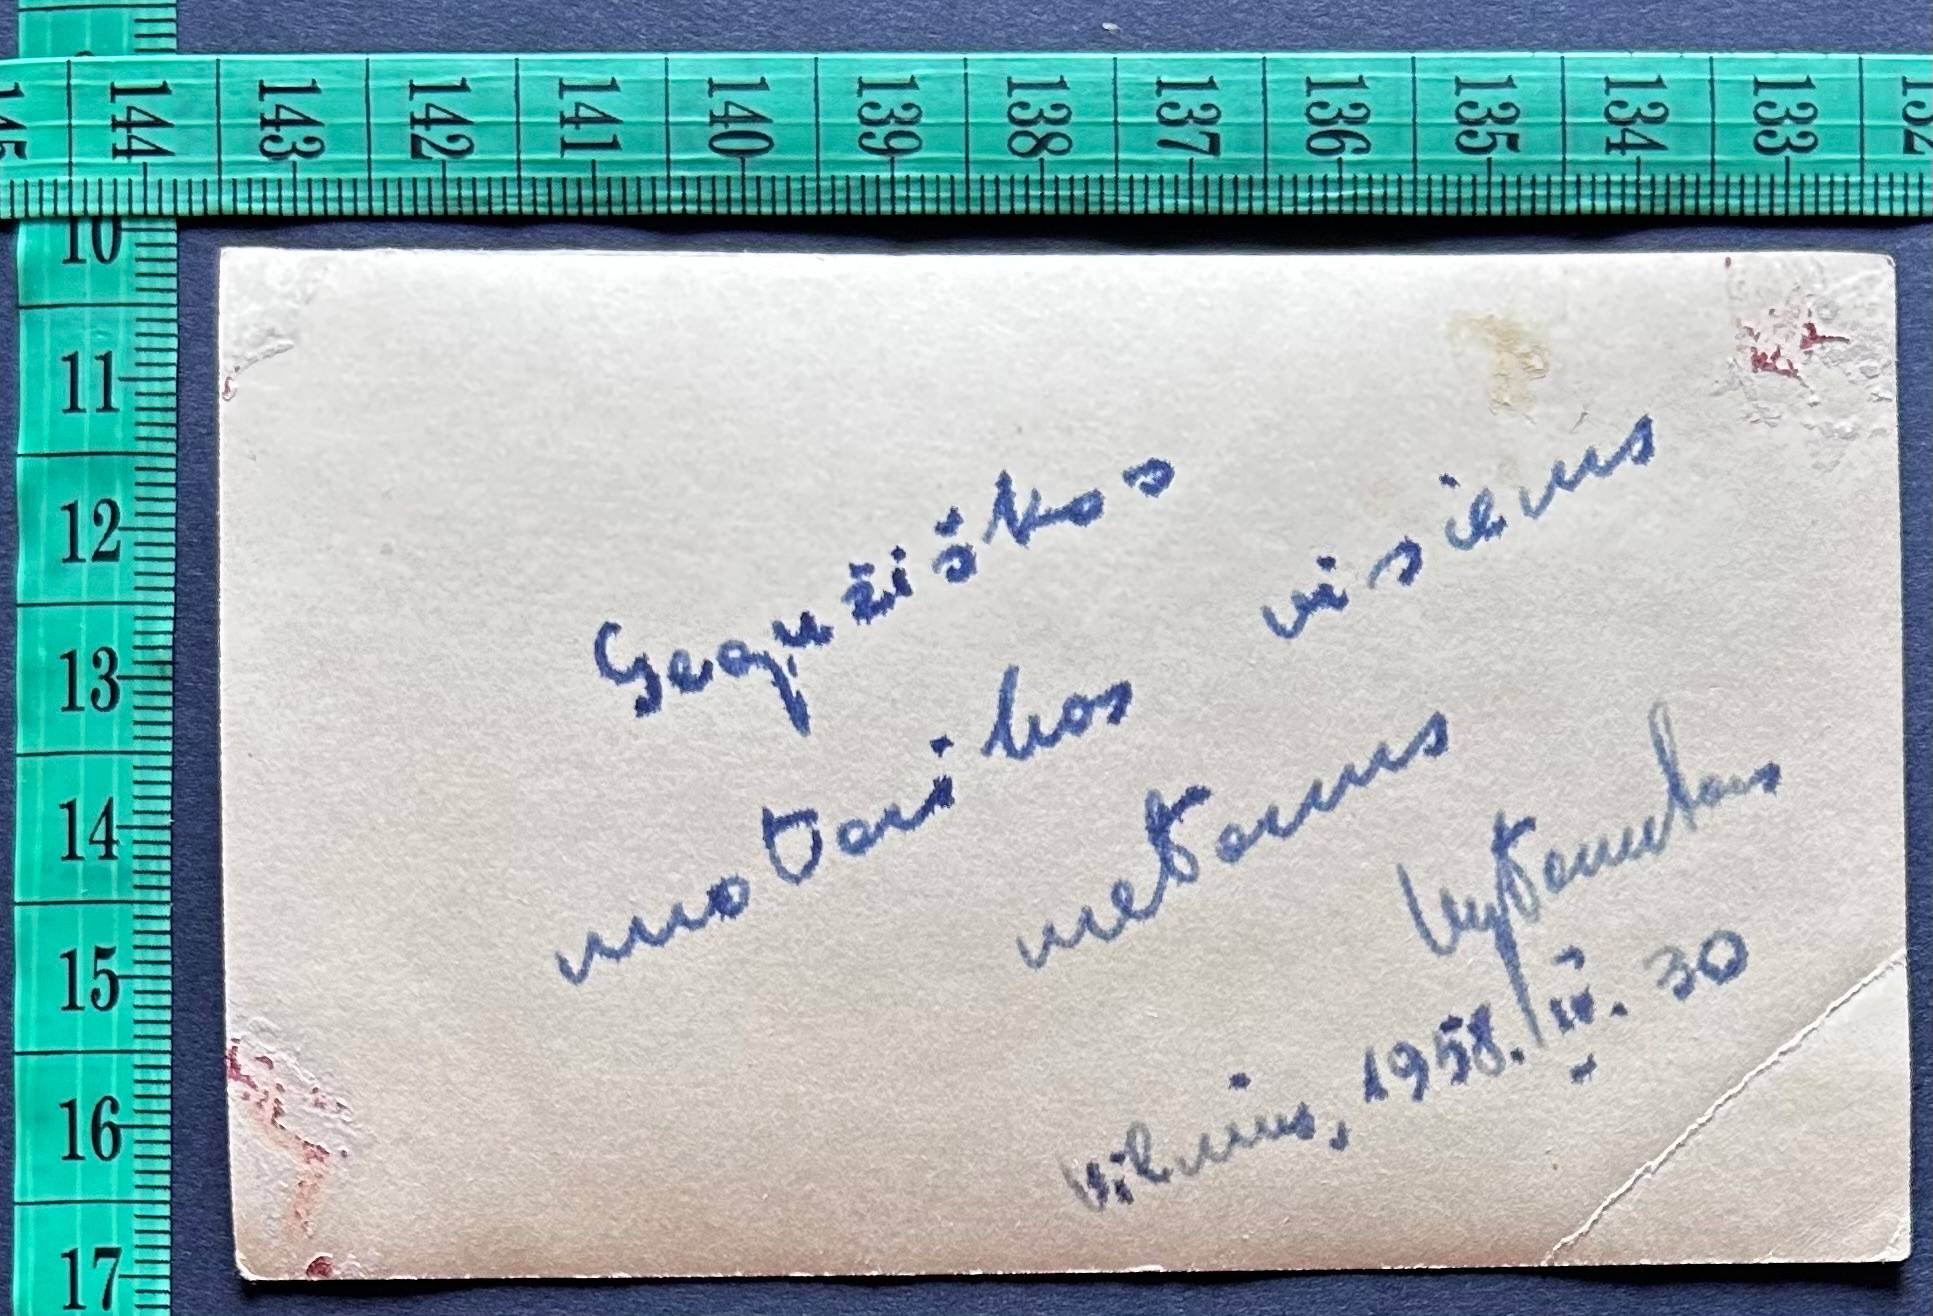 145 144 143 142 141 140 139 138 137 136 135 134 133 132
10
11
12
13
14
15
16
17
Gegužiškos
nuotaikos visiems
metams
Vytautas
Vilnius, 1958. IV. 30